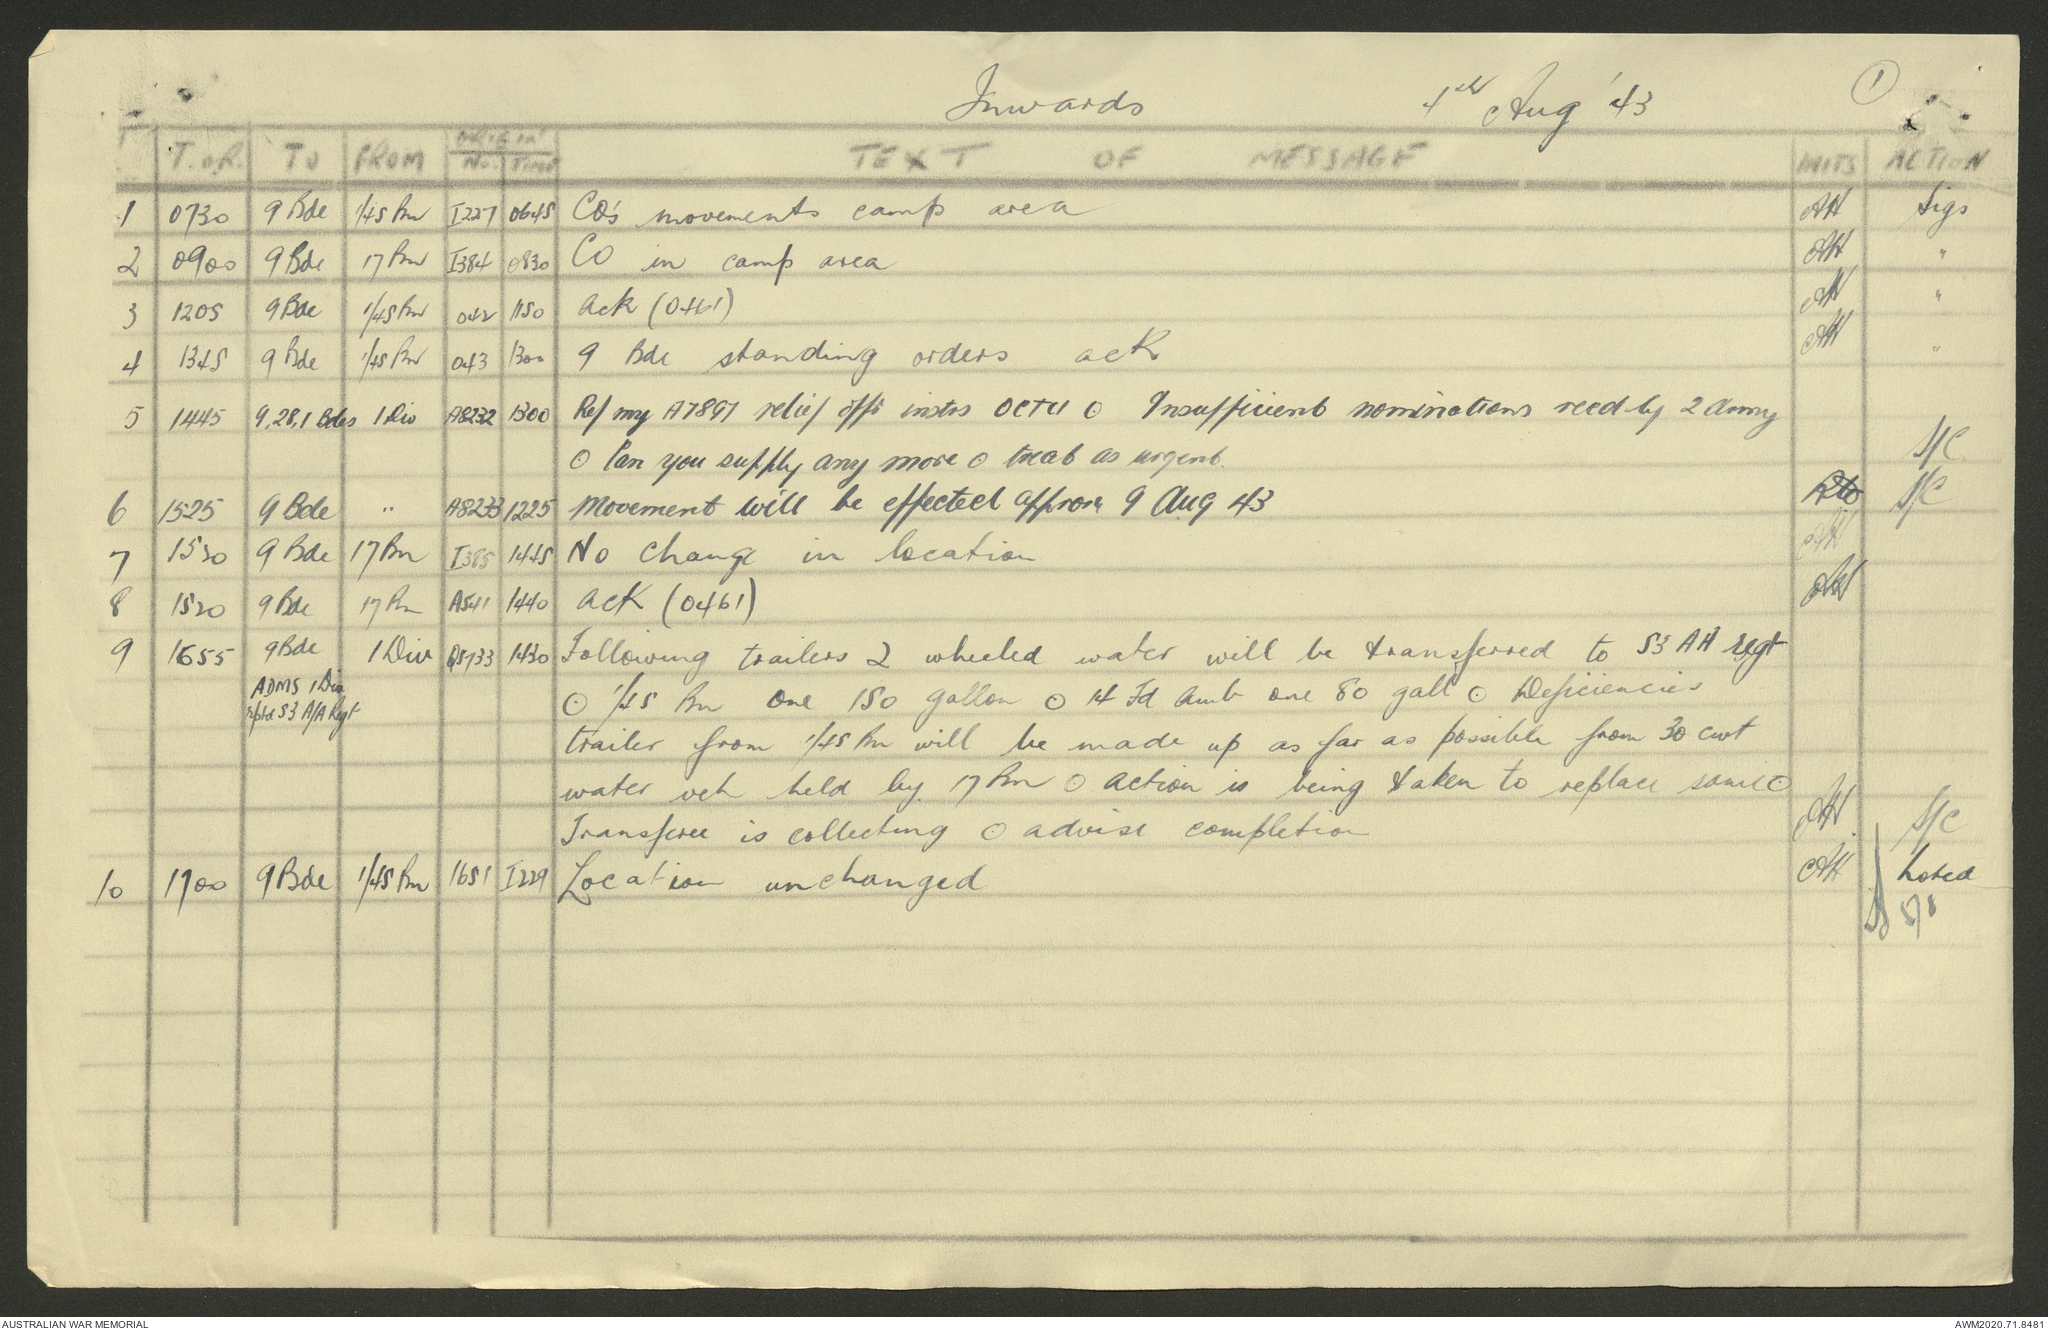 Inwards 4th Aug '43 1
T.O.R. TO FROM ORIGIN TEXT OF MESSAGE INITS ACTION
No. TIME
1 0730 9 Bde 1/45 Bn I227 0645 CO's movements camp area AH Sigs
2 0900 9 Bde 17 Bn I384 0830 CO in camp area AH "
3 1205 9 Bde 1/45 Bn 042 1150 ack (0461) AH "
4 1345 9 Bde 1/45 Bn 043 1300 9 Bde standing orders ack AH "
5 1445 9,28,1 Bdes 1 Div A8232 1300 Ref my A7897 relief offr instrs OCTU ⊙ Insufficient nominations recd by 2 Army
⊙ Can you supply any more ⊙ treat as urgent. S/C
6 1525 9 Bde " A8233 1225 Movement will be effected approx 9 Aug 43 S/C
7 1530 9 Bde 17 Bn I385 1445 No change in location AH
8 1520 9 Bde 17 Bn A541 1440 ack (0461) AH
9 1655 9 Bde 1 Div Q5733 1430 Following trailers 2 wheeled water will be transferred to 53 AA regt
ADMS 1 Div
rptd 53 A/A Regt
⊙ 1/45 Bn one 150 gallon ⊙ 14 Fd Amb one 80 gall ⊙ Deficiencies
trailer from 1/45 Bn will be made up as far as possible from 30 cwt
water veh held by 17 Bn ⊙ action is being taken to replace same ⊙
Transferee is collecting ⊙ advise completion AH S/C
10 1700 9 Bde 1/45 Bn 1651 I229 Location unchanged AH noted
AUSTRALIAN WAR MEMORIAL AWM2020.71.8481